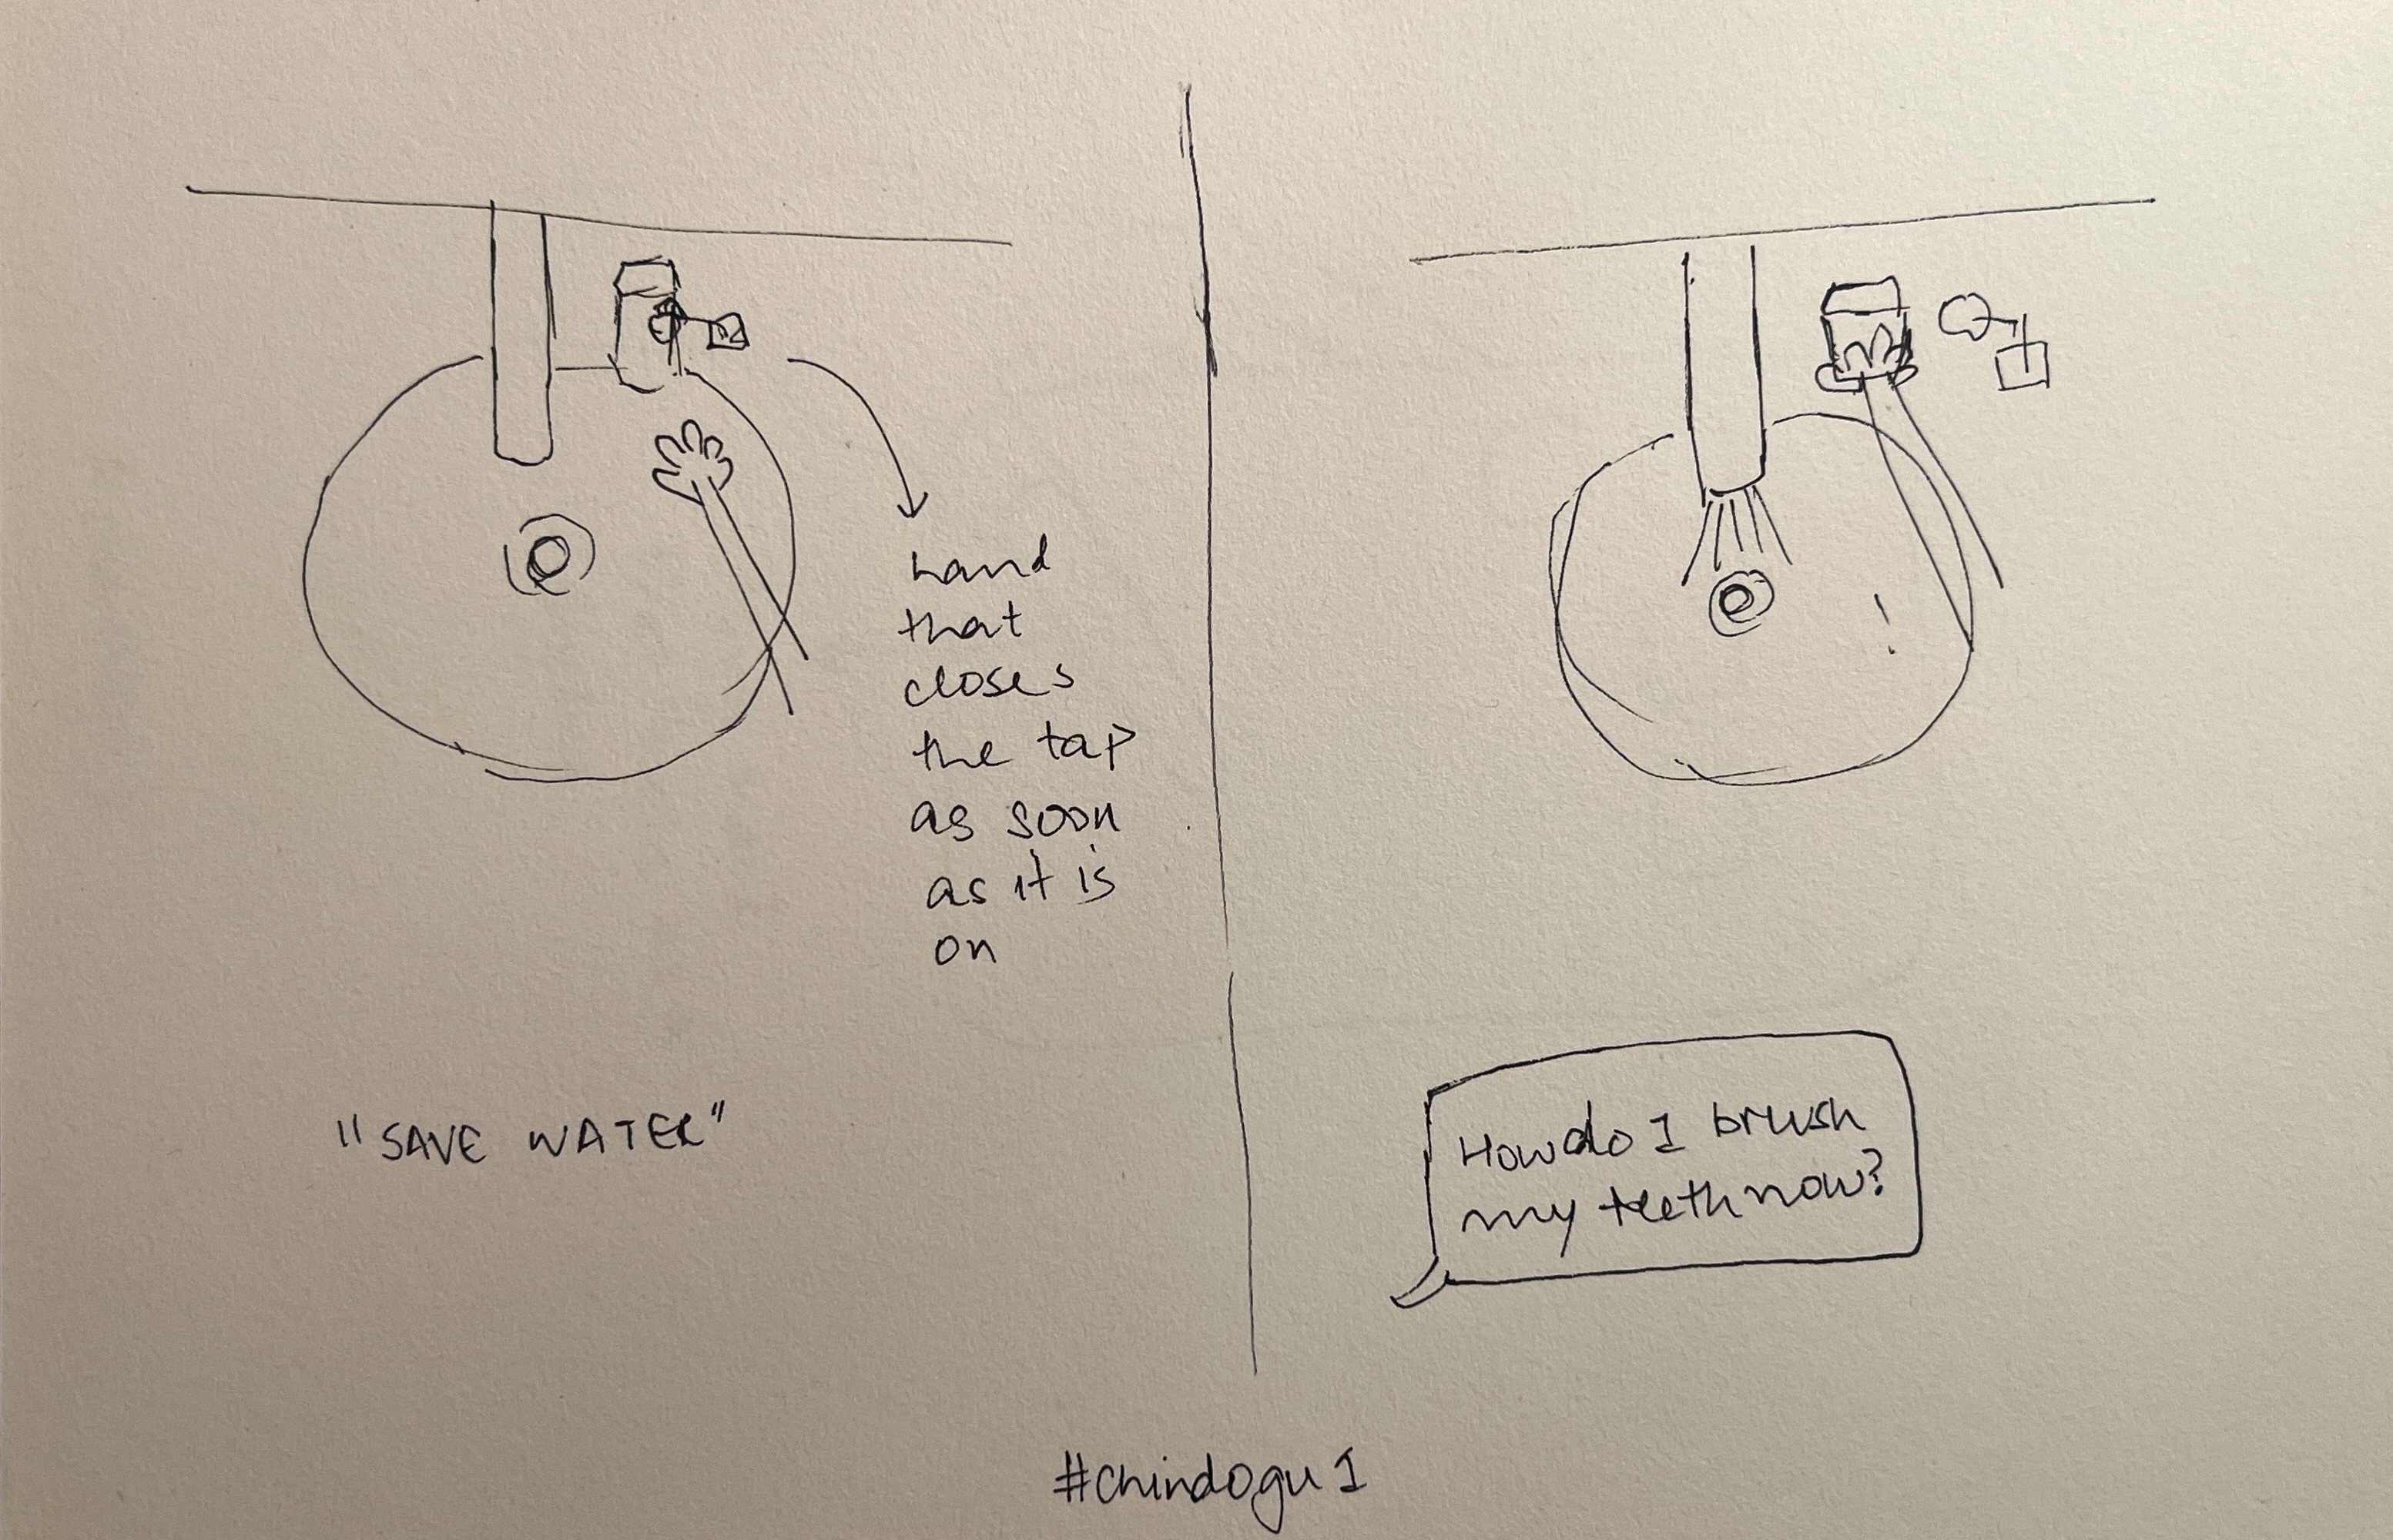 hand
that
closes
the tap
as soon
as it is
on
"SAVE WATER"
How do I brush
my teeth now?
#chindogu 1